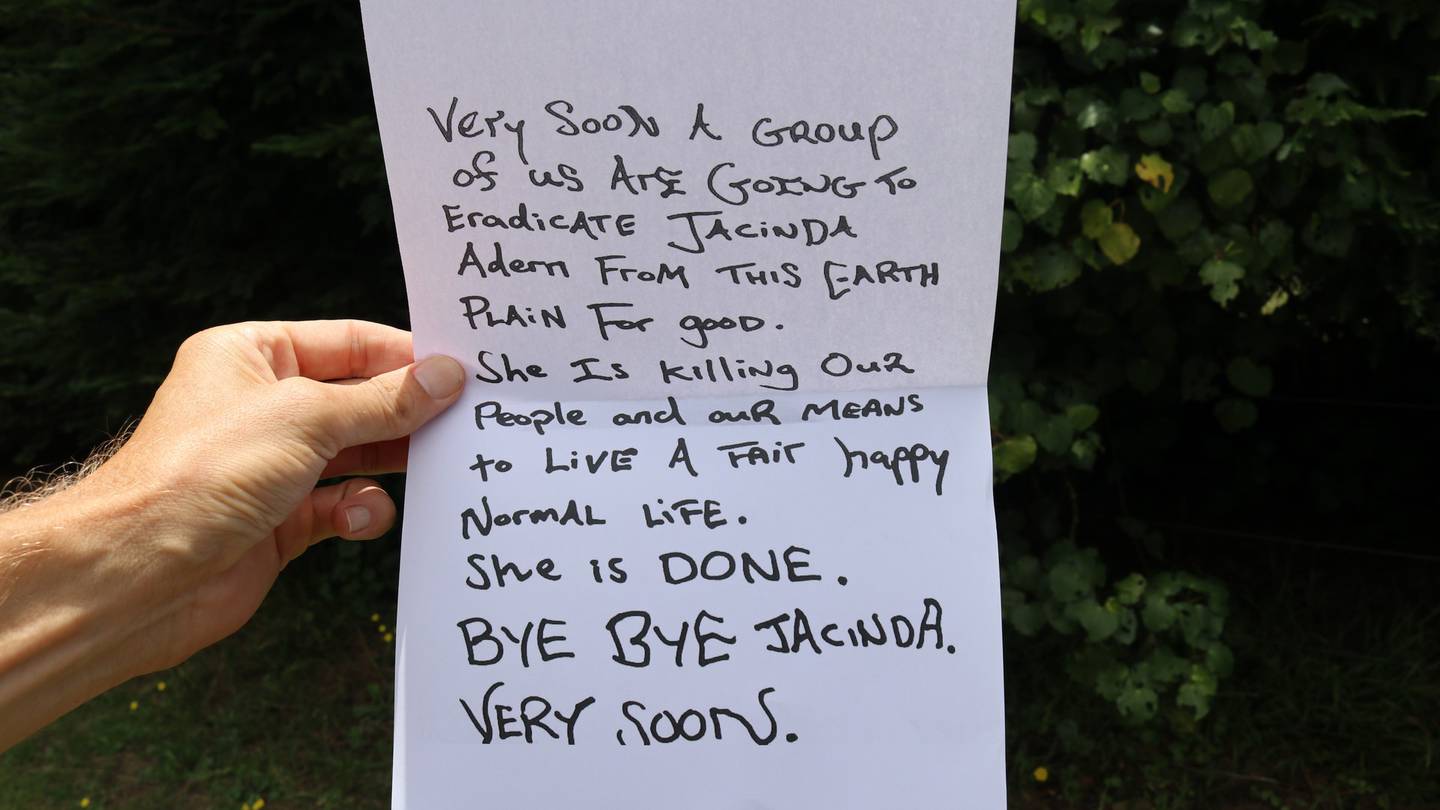 Very Soon A Group
of us Are Going To
Eradicate Jacinda
Adern From This Earth
Plain For good.
She Is killing Our
People and our means
to Live A Fair happy
Normal Life.
She is DONE.
BYE BYE JACINDA.
VERY SOON.